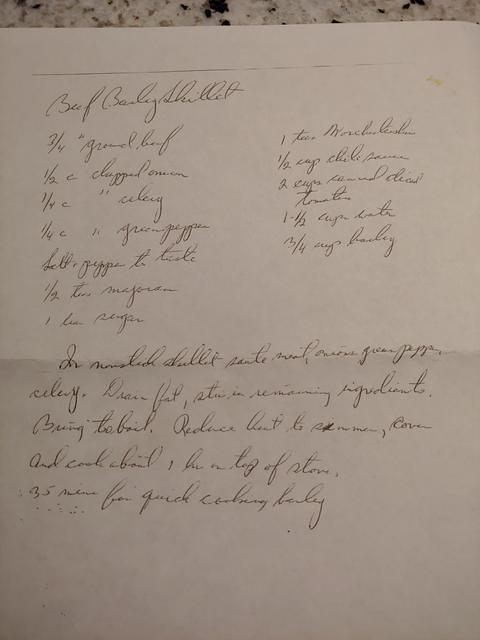 Beef Barley Skillet
3/4 " ground beef
1/2 c chopped onion
1/4 c " celery
1/4 c " green pepper
Salt & pepper to taste
1/2 teas majoram
1 teas sugar
1 teas Worchestershire
1/2 cup chile sauce
2 cups canned diced
tomatoes
1-1/2 cups water
3/4 cups barley
In nonstick skillet saute meat, onions green pepper,
celery. Drain fat, stir in remaining ingredients.
Bring to boil. Reduce heat to simmer, cover
and cook about 1 hr on top of stove.
35 mins for quick cooking barley